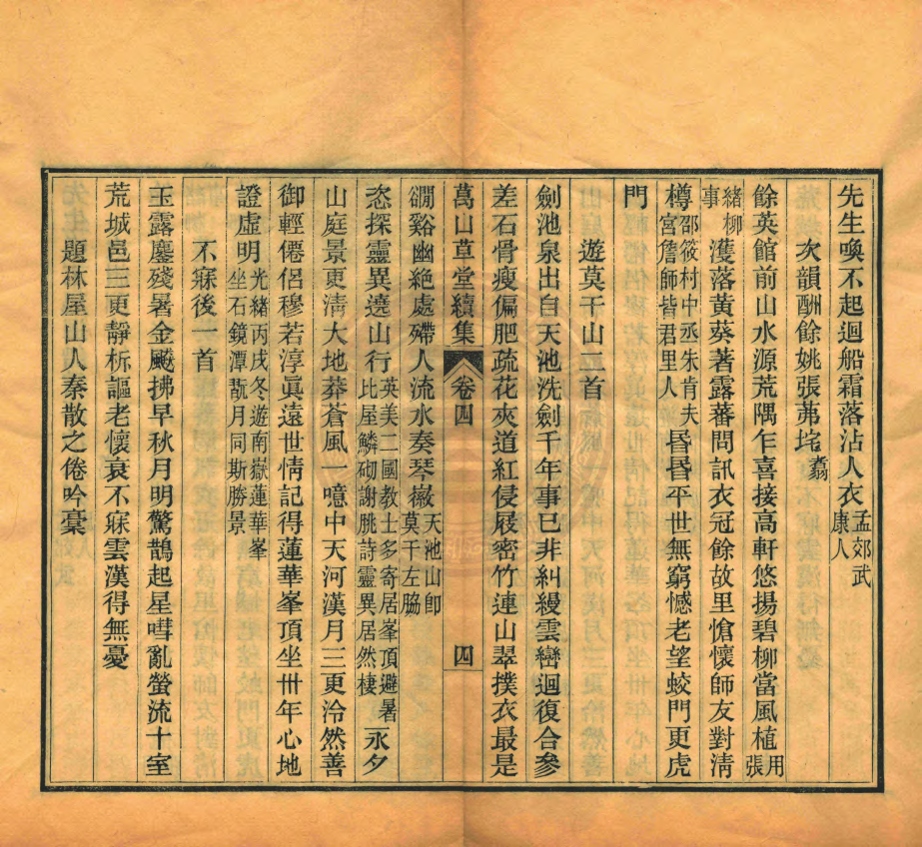 先生喚不起迴船霜落沾人衣孟郊武康人
次韻酬餘姚張茀垞翥
餘英館前山水源荒隅乍喜接高軒悠揚碧柳當風植用張
緒柳事濩落黃葵著露蕃問訊衣冠餘故里愴懷師友對淸
樽邵筱村中丞朱肯夫宮詹師皆君里人昬昬平世無窮憾老望蛟門更虎
門
遊莫干山二首
劍池泉出自天池洗劍千年事已非糾縵雲巒迴復合參
差石骨瘦偏肥疏花夾道紅侵屐密竹連山翠撲衣最是
萬山草堂續集 卷四 四
礀谿幽絕處殢人流水奏琴徽天池山卽莫干左脇
恣探靈異遶山行英美二國敎士多寄居峯頂避暑比屋鱗砌謝朓詩靈異居然棲永夕
山庭景更淸大地莽蒼風一噫中天河漢月三更泠然善
御輕僊侶穆若淳眞遠世情記得蓮華峯頂坐卅年心地
證虛明光緒丙戌冬遊南嶽蓮華峯坐石鏡潭翫月同斯勝景
不寐後一首
玉露鏖殘暑金飈拂早秋月明驚鵲起星嘒亂螢流十室
荒城邑三更靜柝謳老懷衰不寐雲漢得無憂
題林屋山人秦散之倦吟稾